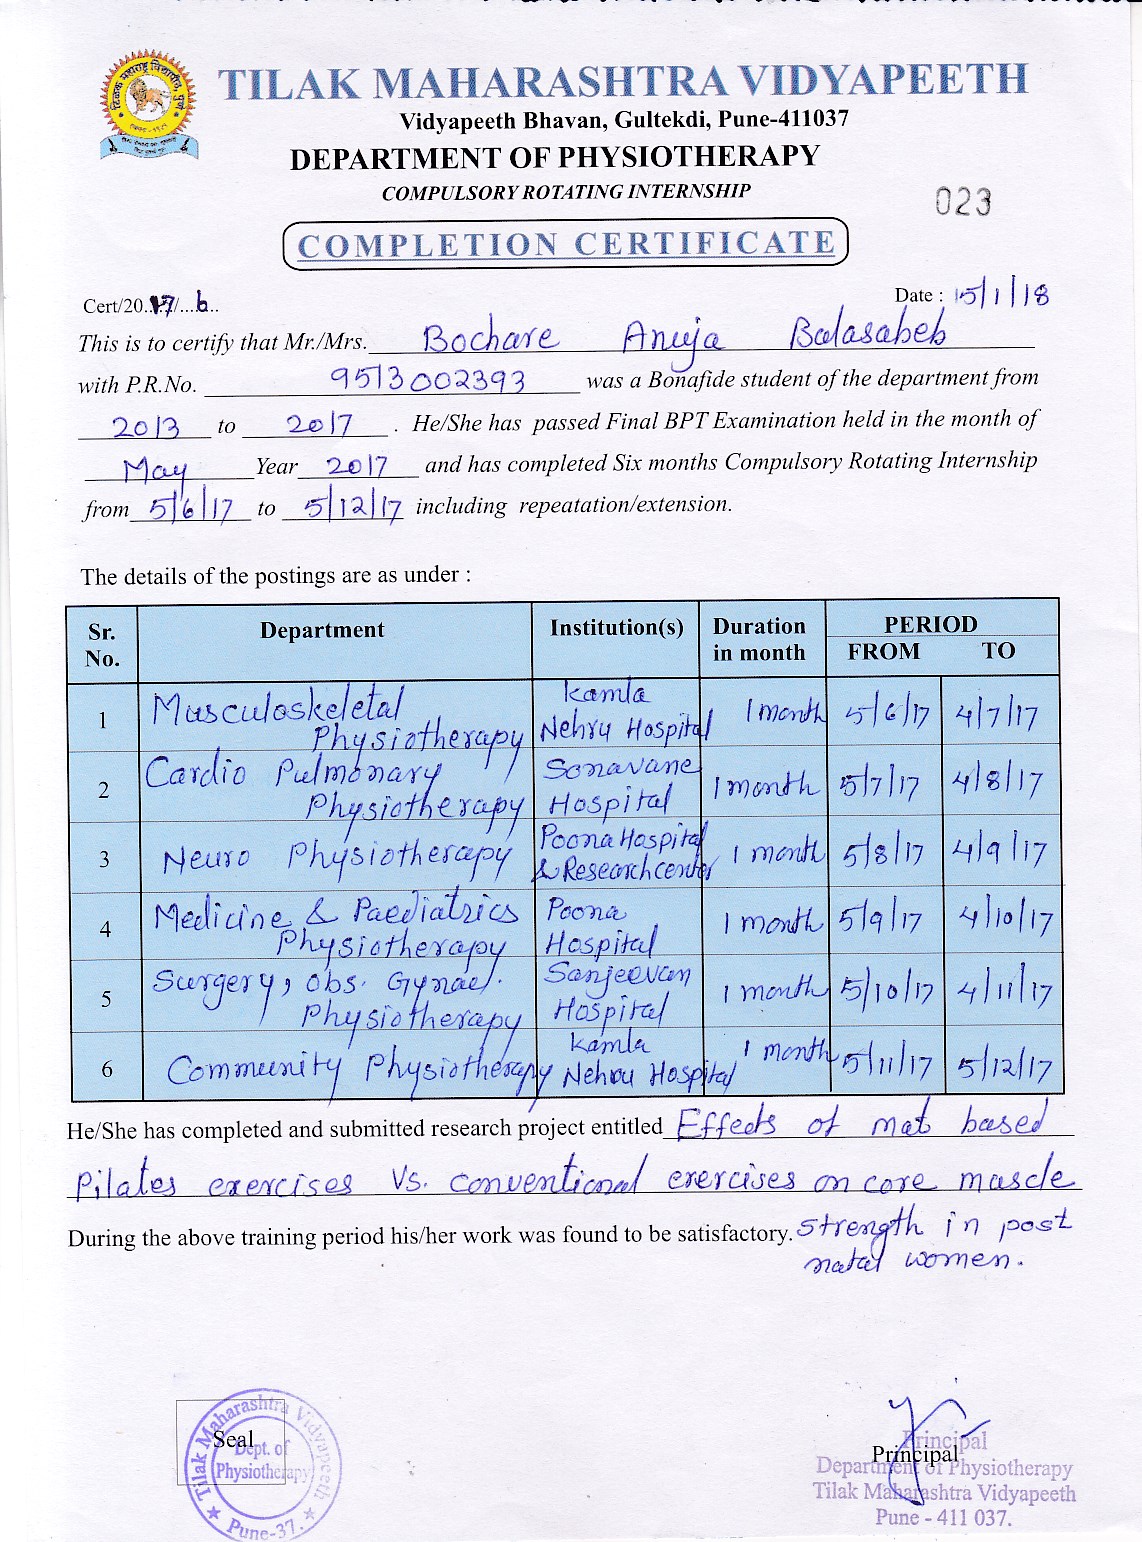 TILAK MAHARASHTRA VIDYAPEETH
Vidyapeeth Bhavan, Gultekdi, Pune-411037
DEPARTMENT OF PHYSIOTHERAPY
COMPULSORY ROTATING INTERNSHIP
023
COMPLETION CERTIFICATE
Cert/20..17/...b...
Date : 15/1/18
This is to certify that Mr./Mrs. Bochare Anuja Balasaheb
with P.R.No. 9513002393 was a Bonafide student of the department from
2013 to 2017 . He/She has passed Final BPT Examination held in the month of
May Year 2017 and has completed Six months Compulsory Rotating Internship
from 5/6/17 to 5/12/17 including repeatation/extension.
The details of the postings are as under :
Sr. No. Department Institution(s) Duration in month PERIOD FROM TO
1 Musculoskeletal Physiotherapy Kamla Nehru Hospital 1 month 5/6/17 4/7/17
2 Cardio Pulmonary Physiotherapy Sonavane Hospital 1 month 5/7/17 4/8/17
3 Neuro Physiotherapy Poona Hospital & Research center 1 month 5/8/17 4/9/17
4 Medicine & Paediatrics Physiotherapy Poona Hospital 1 month 5/9/17 4/10/17
5 Surgery, Obs. Gynae. Physiotherapy Sanjeevan Hospital 1 month 5/10/17 4/11/17
6 Community Physiotherapy Kamla Nehru Hospital 1 month 5/11/17 5/12/17
He/She has completed and submitted research project entitled Effects of mat based
Pilates exercises Vs. conventional exercises on core muscle
During the above training period his/her work was found to be satisfactory. strength in post
natal women.
Seal
Tilak Maharashtra Vidyapeeth
Dept. of
Physiotherapy
Pune-37.
Principal
Principal
Department of Physiotherapy
Tilak Maharashtra Vidyapeeth
Pune - 411 037.